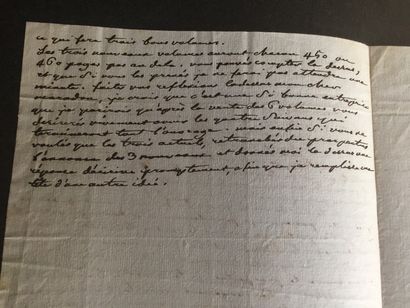 ce qui fera trois bons volumes.
Les trois nouveaux volumes auront chacun 450 ou
460 pages pas au dela. vous pouvés compter la dessus,
et que si vous les prenés je ne ferai pas attendre une
minute. faites vos reflexions la dessus mon cher
je crois que c'est une si bonne entreprise
que je parie qu'après la vente des 6 volumes vous
desirerés vivement avoir les quatre suivans qui
termineront tout l'ouvrage. mais enfin si vous ne
voulés que les trois actuels, retranchés du prospectus
l'annonce des 3 nouveaux et donnés moi la dessus une
réponse décisive promptement, afin que je remplisse ma
tête d'un autre idée.